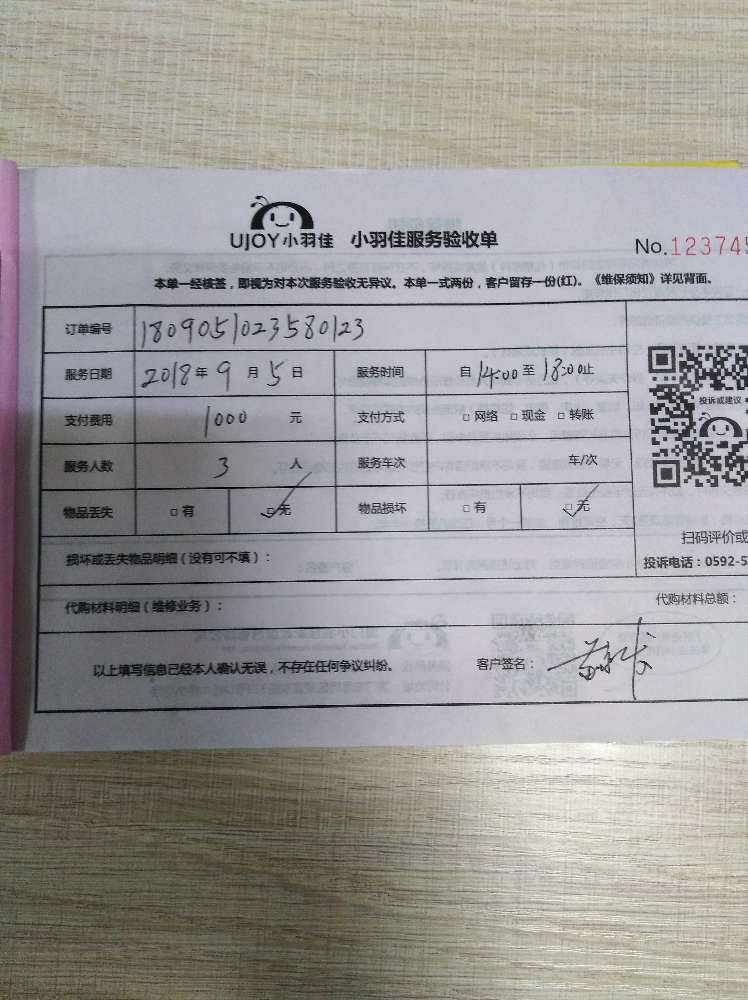 UJOY小羽佳 小羽佳服务验收单
No.123745
本单一经核签，即视为对本次服务验收无异议。本单一式两份，客户留存一份(红)。《维保须知》详见背面。
订单编号 1809051023580123
服务日期 2018年9月5日 服务时间 自14:00至18:00止
支付费用 1000 元 支付方式 □网络 □现金 □转账
投诉或建议
服务人数 3 人 服务车次 车/次
物品丢失 □有 ☑无 物品损坏 □有 ☑无
扫码评价或
损坏或丢失物品明细（没有可不填）：
投诉电话：0592-5
代购材料明细（维修业务）： 代购材料总额：
以上填写信息已经本人确认无误，不存在任何争议纠纷。 客户签名：